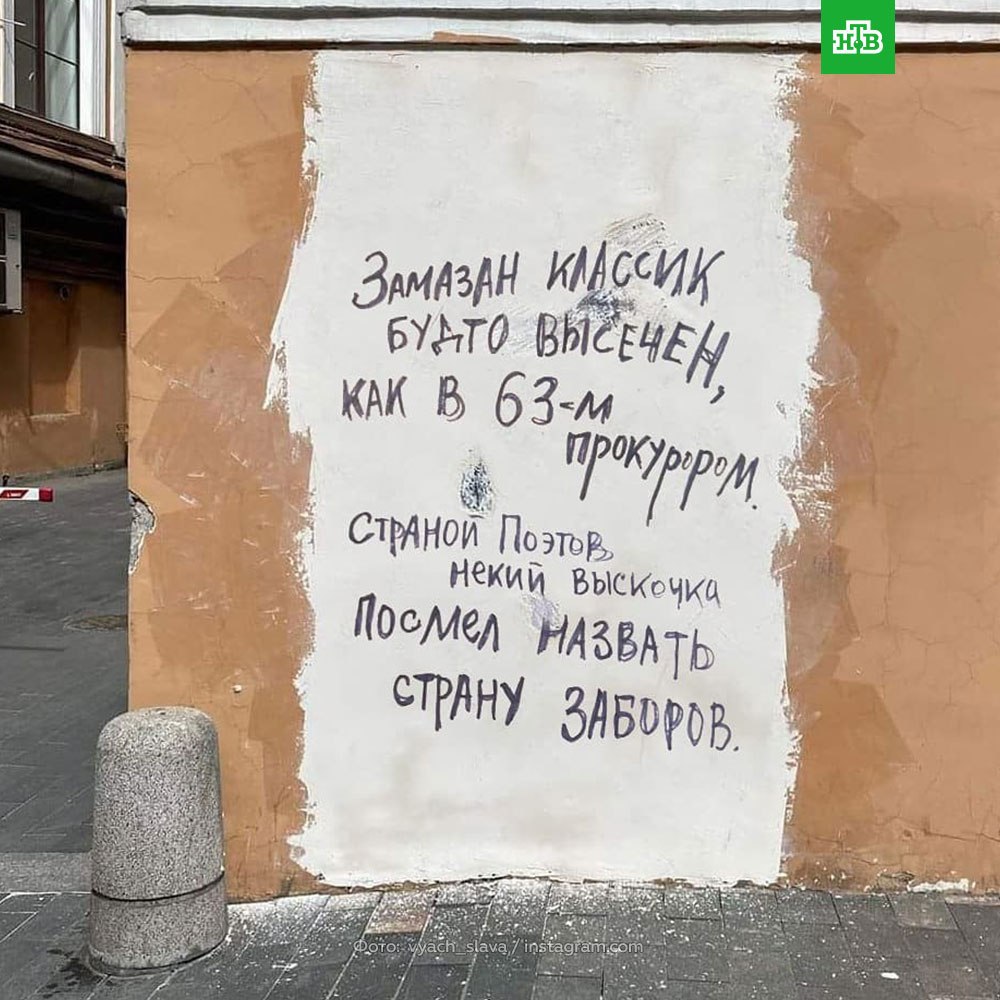 НТВ
Замазан классик
будто высечен,
как в 63-м
прокурором.
Страной Поэтов
некий выскочка
посмел назвать
страну заборов.
Фото: vyach_slava / instagram.com